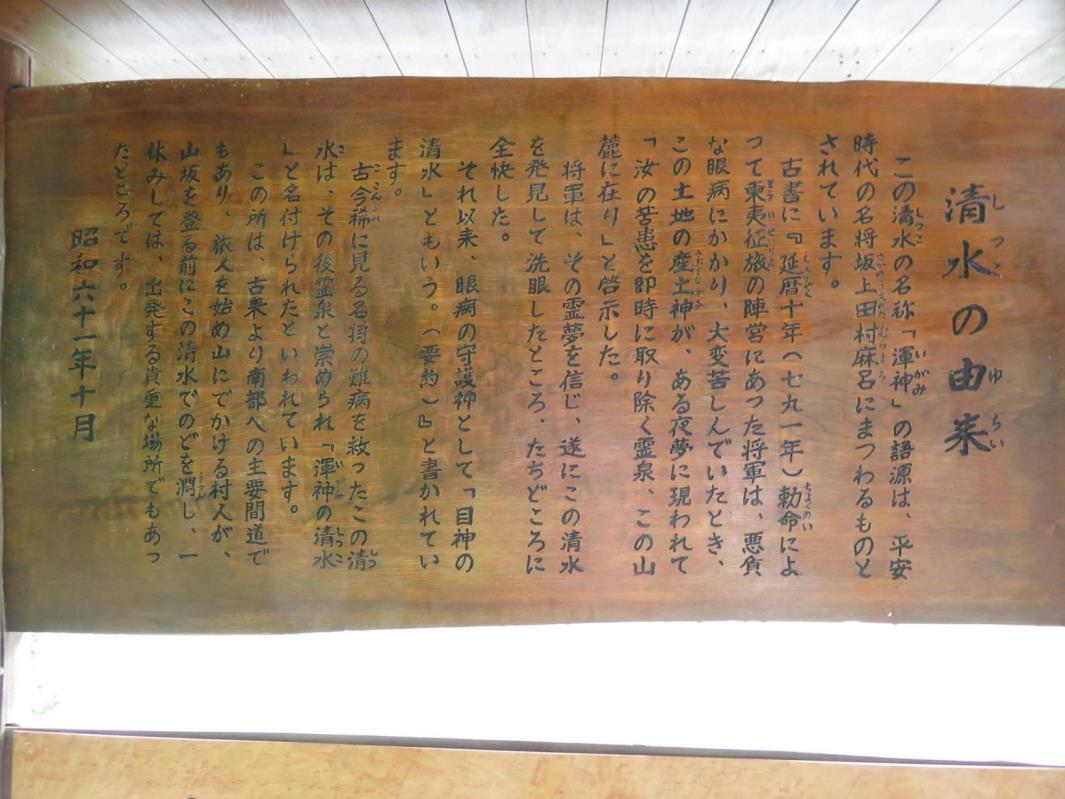 清水の由来
この清水の名称「渾神」の語源は、平安
時代の名将坂上田村麻呂にまつわるものと
されています。
古書に『延暦十年（七九一年）勅命によ
って東夷征旅の陣営にあった将軍は、悪質
な眼病にかかり、大変苦しんでいたとき、
この土地の産土神が、ある夜夢に現われて
「汝の苦患を即時に取り除く霊泉、この山
麓に在り」と啓示した。
将軍は、その霊夢を信じ、遂にこの清水
を発見して洗眼したところ、たちどころに
全快した。
それ以来、眼病の守護神として「目神の
清水」ともいう。（要約）』と書かれてい
ます。
古今稀に見る名将の難病を救ったこの清
水は、その後霊泉と崇められ「渾神の清水
」と名付けられたといわれています。
この所は、古来より南部への主要間道で
もあり、旅人を始め山にでかける村人が、
山坂を登る前にこの清水でのどを潤し、一
休みしては、出発する貴重な場所でもあっ
たところです。
昭和六十一年十月